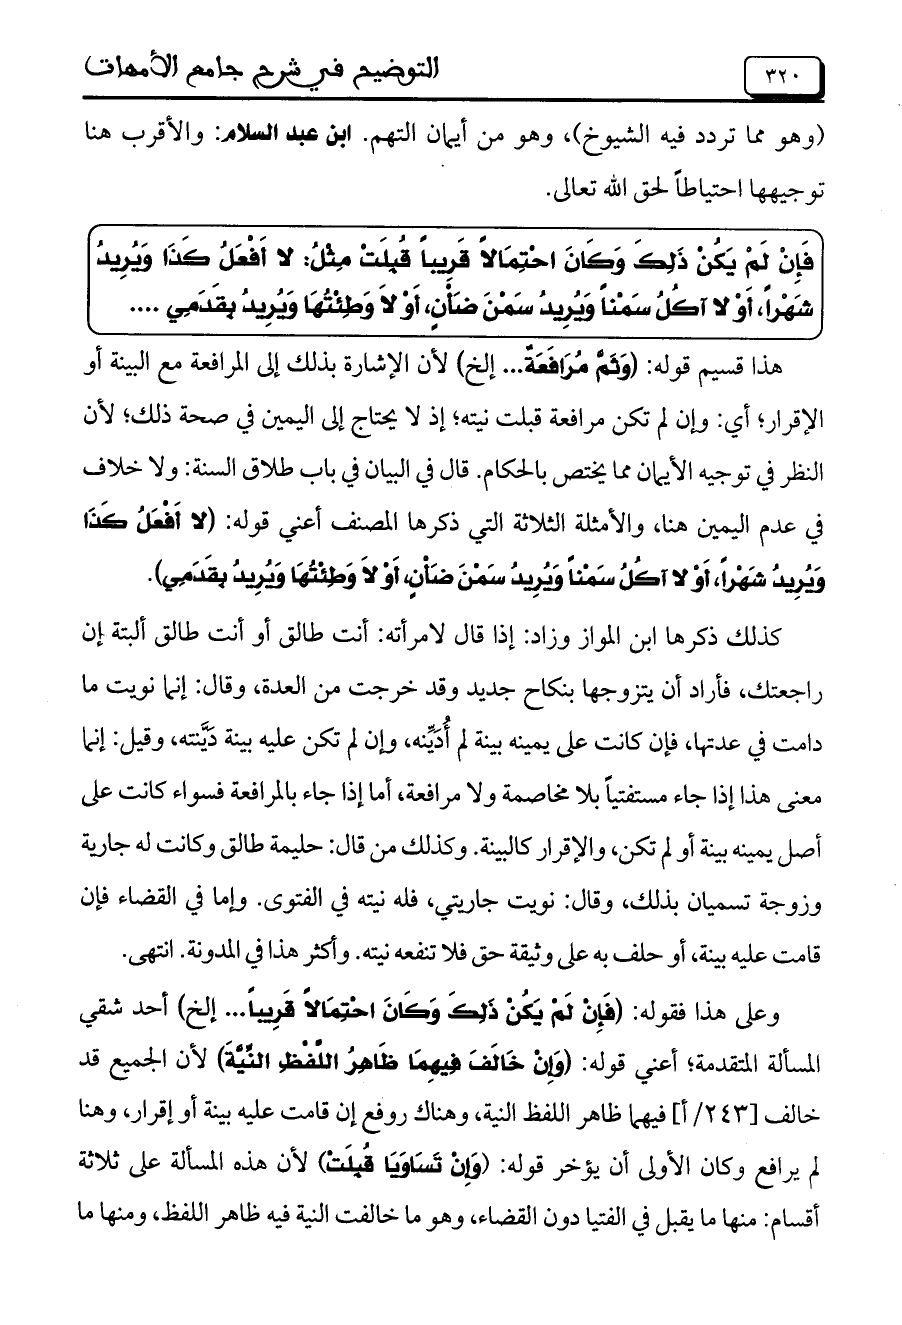 ٣٢٠
التوضيح في شرح جامع الأمهات
(وهو مما تردد فيه الشيوخ)، وهو من أيمان التهم. ابن عبد السلام: والأقرب هنا
توجيهها احتياطاً لحق الله تعالى.
فَإِنْ لَمْ يَكُنْ ذَلِكَ وَكَانَ احْتِمَالاً قَرِيباً قُبِلَتْ مِثْلُ: لا أَفْعَلُ كَذَا وَيُرِيدُ
شَهْراً، أَوْ لا آكُلُ سَمْناً وَيُرِيدُ سَمْنَ ضَأْنٍ، أَوْ لاَ وَطِئْتُهَا وَيُرِيدُ بِقَدَمِي ....
هذا قسيم قوله: (وَثَمَّ مُرَافَعَةٌ... إلخ) لأن الإشارة بذلك إلى المرافعة مع البينة أو
الإقرار؛ أي: وإن لم تكن مرافعة قبلت نيته؛ إذ لا يحتاج إلى اليمين في صحة ذلك؛ لأن
النظر في توجيه الأيمان مما يختص بالحكام. قال في البيان في باب طلاق السنة: ولا خلاف
في عدم اليمين هنا، والأمثلة الثلاثة التي ذكرها المصنف أعني قوله: (لا أَفْعَلُ كَذَا
وَيُرِيدُ شَهْراً، أَوْ لا آكُلُ سَمْناً وَيُرِيدُ سَمْنَ ضَأْنٍ، أَوْ لاَ وَطِئْتُهَا وَيُرِيدُ بِقَدَمِي).
كذلك ذكرها ابن المواز وزاد: إذا قال لامرأته: أنت طالق أو أنت طالق ألبتة إن
راجعتك، فأراد أن يتزوجها بنكاح جديد وقد خرجت من العدة، وقال: إنما نويت ما
دامت في عدتها، فإن كانت على يمينه بينة لم أُدَيِّنه، وإن لم تكن عليه بينة دَيَّنته، وقيل: إنما
معنى هذا إذا جاء مستفتياً بلا مخاصمة ولا مرافعة، أما إذا جاء بالمرافعة فسواء كانت على
أصل يمينه بينة أو لم تكن، والإقرار كالبينة. وكذلك من قال: حليمة طالق وكانت له جارية
وزوجة تسميان بذلك، وقال: نويت جاريتي، فله نيته في الفتوى. وإما في القضاء فإن
قامت عليه بينة، أو حلف به على وثيقة حق فلا تنفعه نيته. وأكثر هذا في المدونة. انتهى.
وعلى هذا فقوله: (فَإِنْ لَمْ يَكُنْ ذَلِكَ وَكَانَ احْتِمَالاً قَرِيباً... إلخ) أحد شقي
المسألة المتقدمة؛ أعني قوله: (وَإِنْ خَالَفَ فِيهِمَا ظَاهِرُ اللَّفْظِ النِّيَّةَ) لأن الجميع قد
خالف [٢٤٣/ أ] فيهما ظاهر اللفظ النية، وهناك روفع إن قامت عليه بينة أو إقرار، وهنا
لم يرافع وكان الأولى أن يؤخر قوله: (وَإِنْ تَسَاوَيَا قُبِلَتْ) لأن هذه المسألة على ثلاثة
أقسام: منها ما يقبل في الفتيا دون القضاء، وهو ما خالفت النية فيه ظاهر اللفظ، ومنها ما